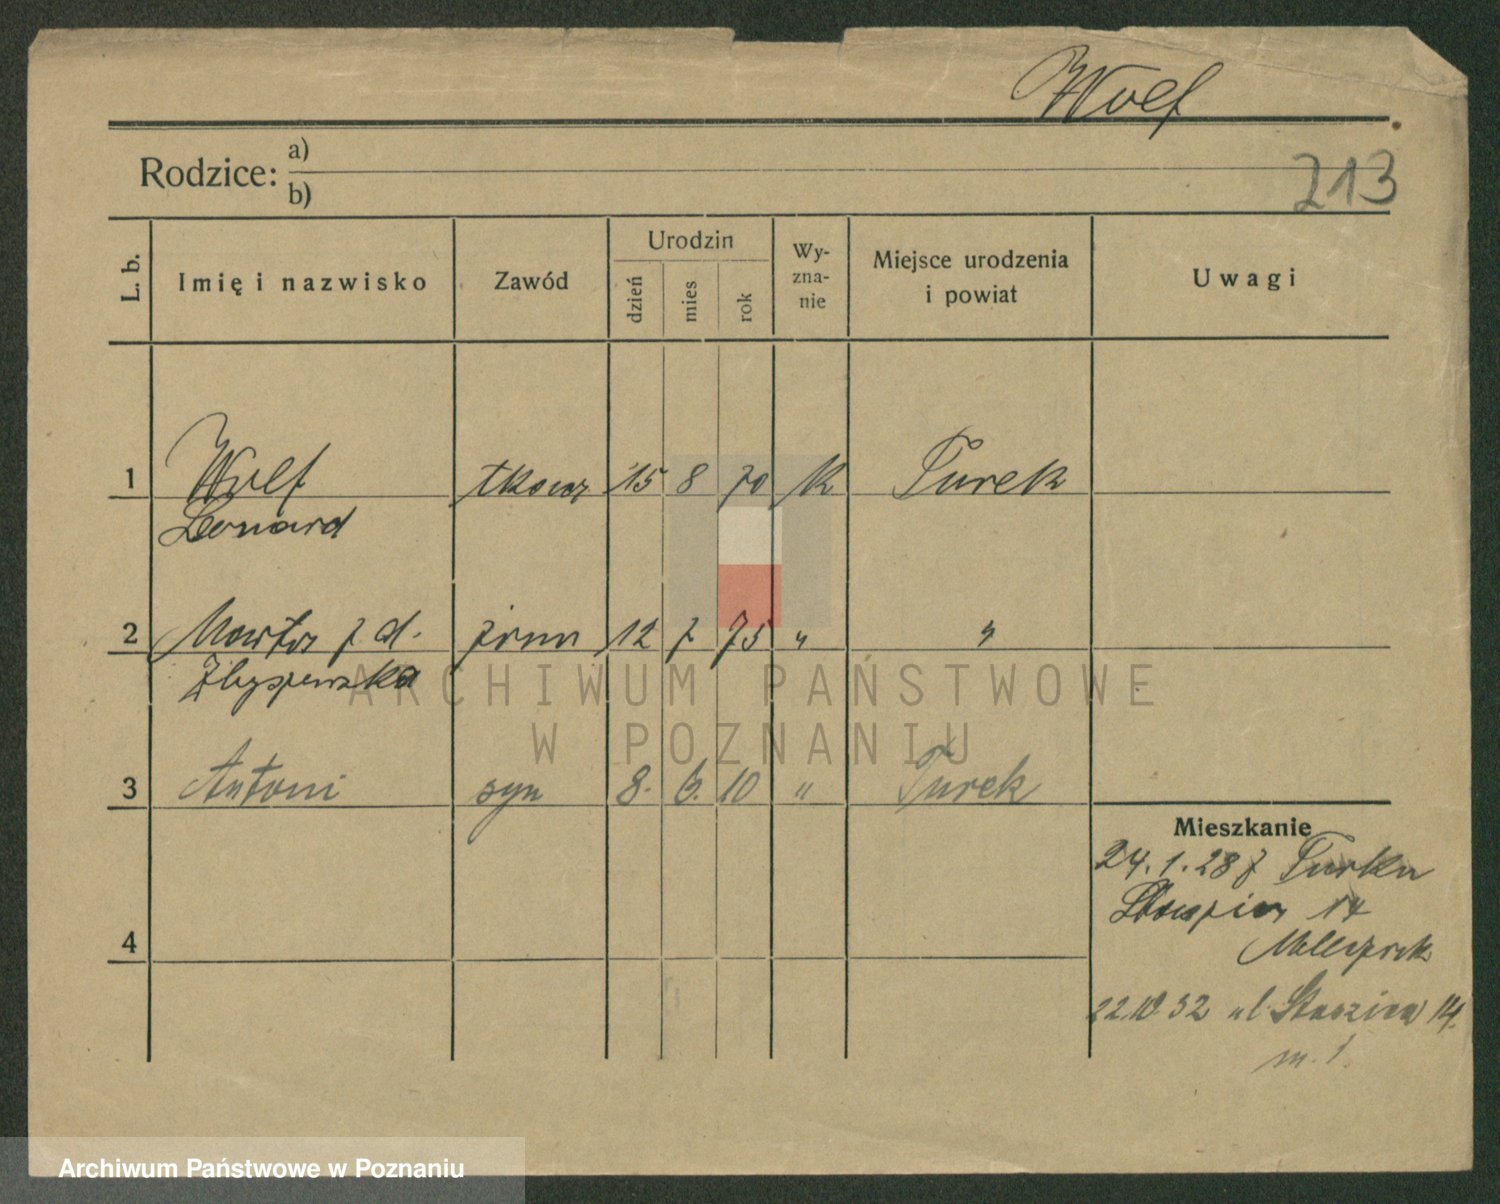 Wolf
Rodzice:
a)
b)
213
L. b.
Imię i nazwisko
Zawód
Urodzin
dzień
mies
rok
Wy-
zna-
nie
Miejsce urodzenia
i powiat
Uwagi
1 Wolf tkacz 15 8 70 k Turek
Leonard
2 Marta z d. żona 12 7. 75 " "
Zbyszewska
ARCHIWUM PAŃSTWOWE
W POZNANIU
3 Antoni syn 8. 6. 10 " Turek
Mieszkanie
24.1.28 z Turku
14
4
22.10 32 ul. Staszica 14.
m. 1.
Archiwum Państwowe w Poznaniu